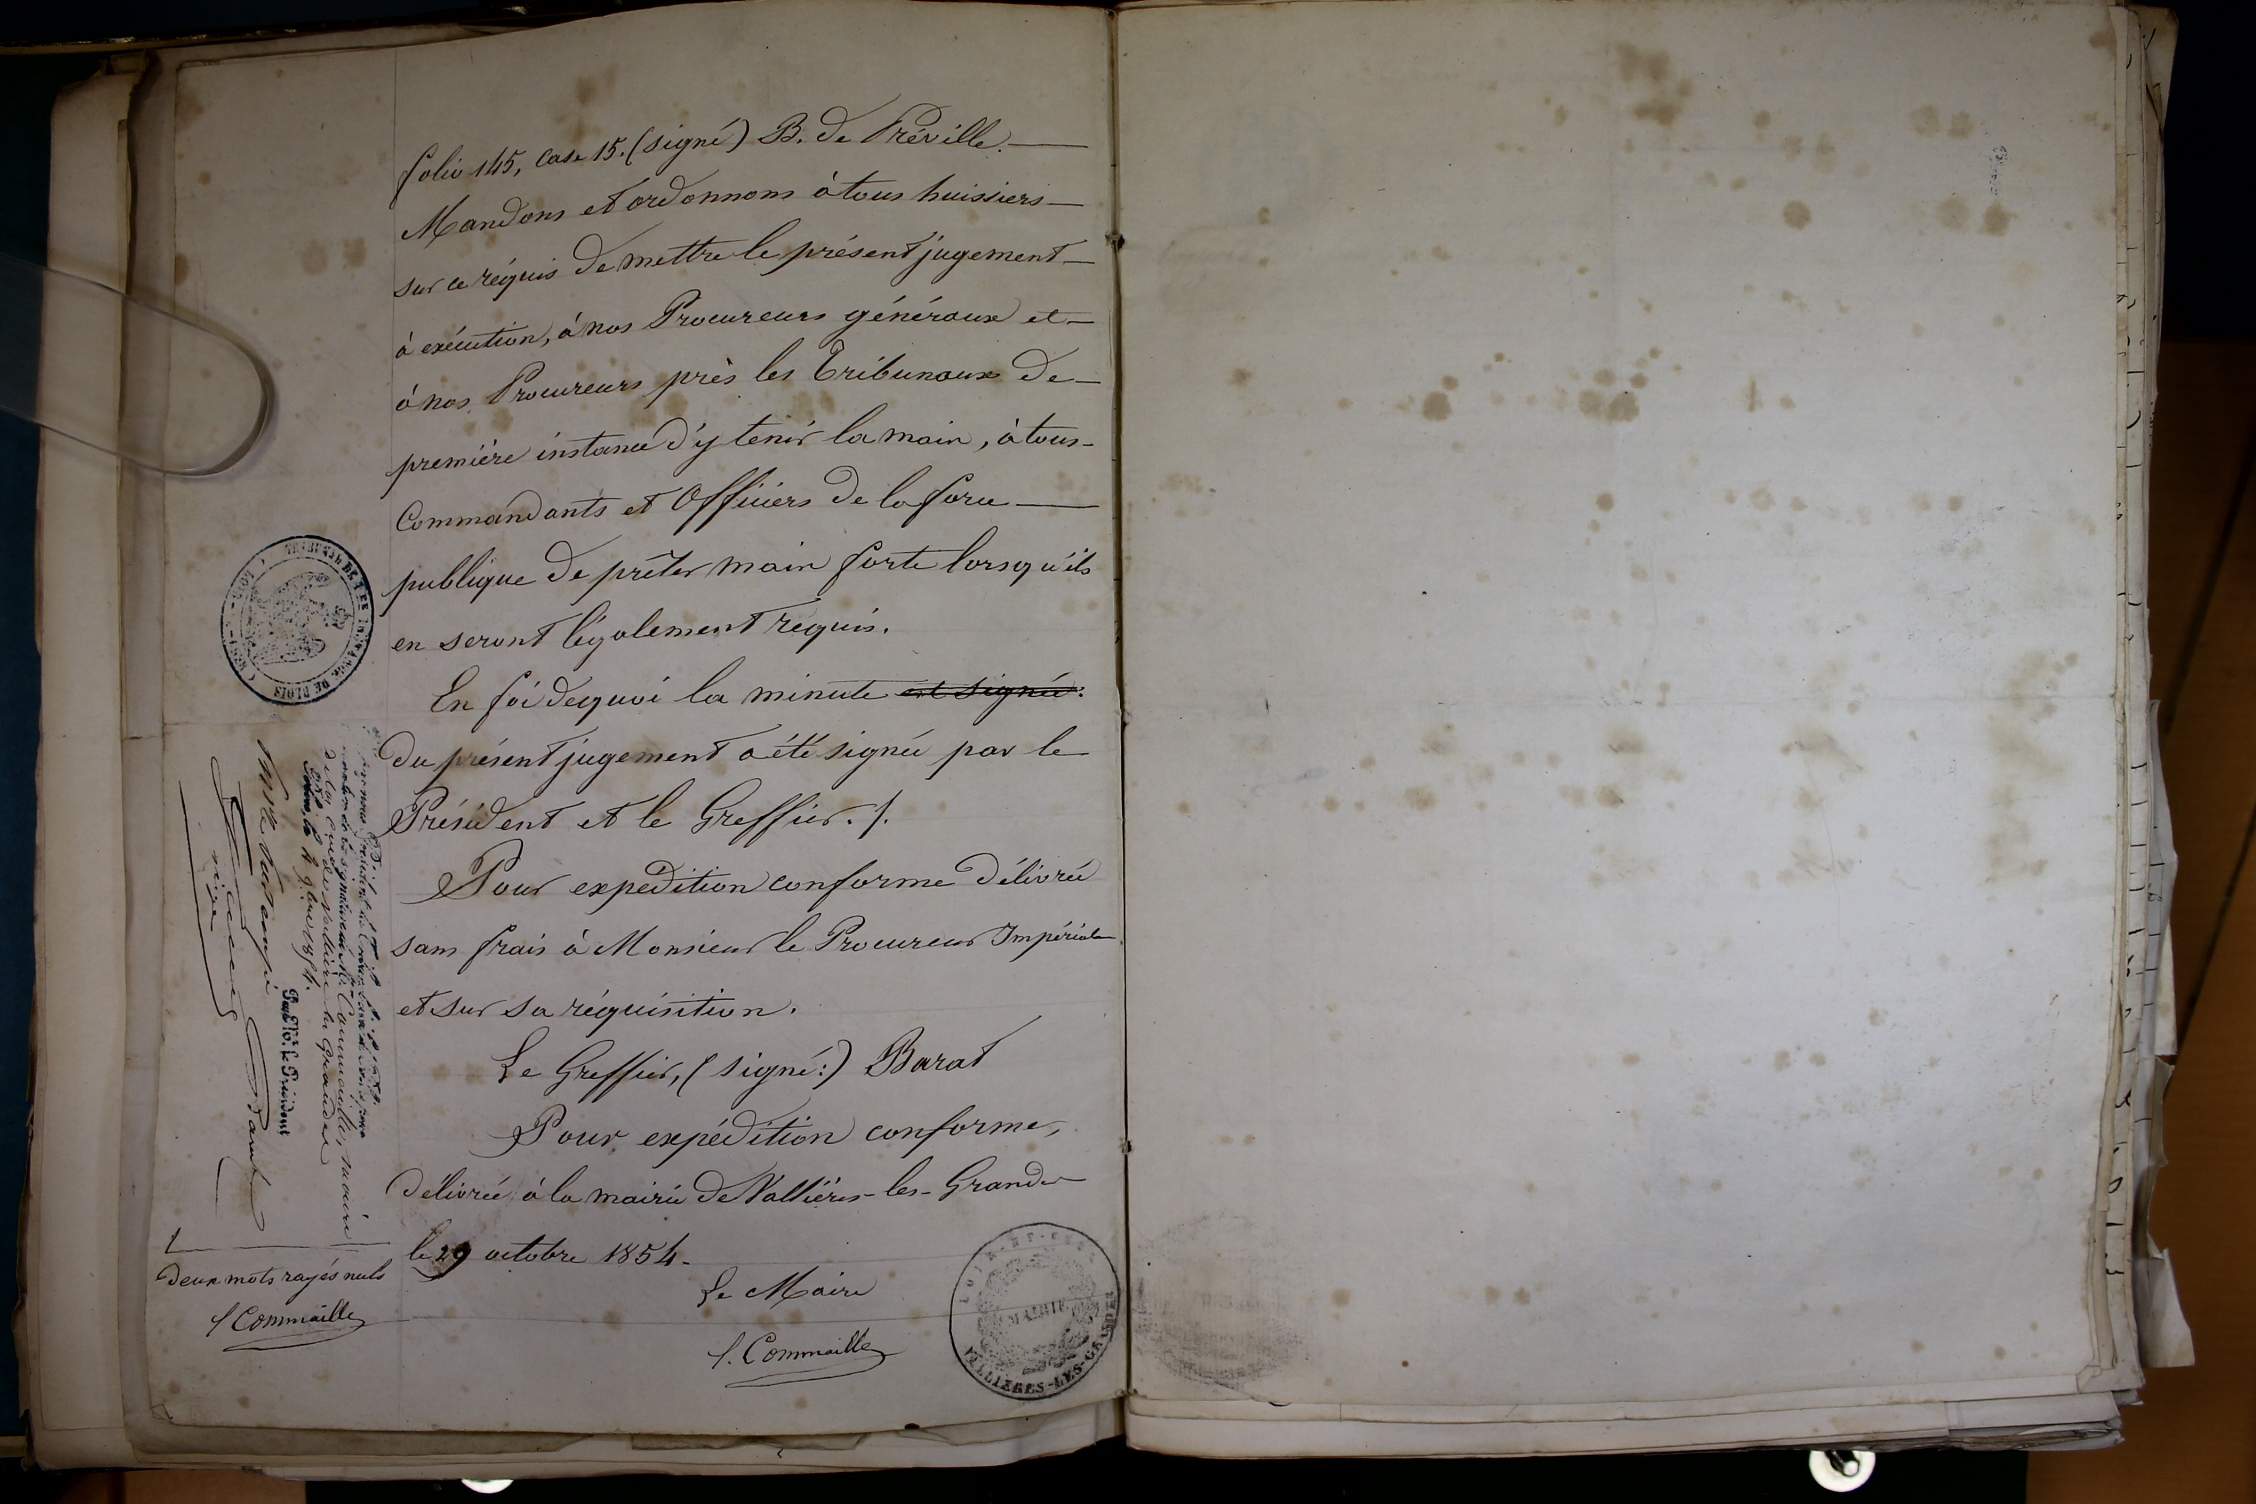 folio 145, case 15. (signé) B. de Préville.
Mandons et ordonnons à tous huissiers
sur ce réquis de mettre le présent jugement
à exécution, à nos Procureurs généraux et
à nos Procureurs près les Tribunaux de
première instance d'y tenir la main, à tous
Commandants et Officiers de la force
publique de prêter main forte lorsqu'ils
en seront légalement requis.
En foi de quoi la minute est signée:
du présent jugement a été signée par le
Président et le Greffier. /.
Pour expedition conforme délivrée
sans frais à Monsieur le Procureur Impérial
et sur sa réquisition.
Le Greffier, (signé:) Barat
Pour expédition conforme,
délivrée à la mairie de Vallières-les-Grandes
le 29 octobre 1854.
Le Maire
f. Commaille
LOIR-ET-CHER
MAIRIE
VALLIERES-LES-GRANDES
TRIBUNAL DE 1ERE INSTANCE DE BLOIS
LOIR-ET-CHER
Commaille, maire
de la Cne de Vallières les Grandes
le 4 9bre 1854.
Pour le Président
deux mots rayés nuls
f Commaille